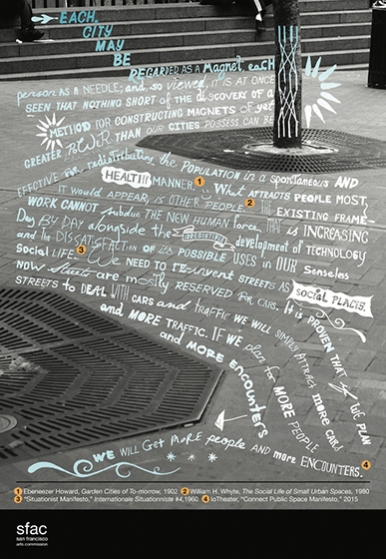 EACH
CITY
MAY
BE
REGARDED AS a Magnet, eacH
person AS a NEEDLE; and, so viewed, IT IS AT ONCE
SEEN THAT NOTHING SHORT of THE DISCOVERY OF A
METHOD FOR CONSTRUCTING MAGNETS OF yet
GREATER POWER THAN OUR CITIES POSSESS CAN BE
EFFECTIVE for redistributing the POPULATION in a spontaneous AND
HEALTHY MANNER. 1 What ATTRACTS PEOPLE MOST,
it WOULD APPEAR, IS OTHER PEOPLE. 2 THE EXISTING FRAME-
WORK CANNOT subdue THE NEW HUMAN force THAT IS INCREASING
Day BY DAY alongside the irresistible development of TECHNOLOGY
and The DISSATISFACTION OF ITS POSSIBLE USES in OUR Senseless
Social LIFE. 3 We NEED TO re-invent STREETS AS SOCIAL PLACES.
NOW Streets are mostly RESERVED for CARS. It is PROVEN THAT if WE PLAN
STREETS to DEAL WITH CARS and traffic WE WILL SIMPLY ATTRACT more CARS
and MORE TRAFFIC. IF WE plan for MORE PEOPLE
and MORE encounters
WE WILL Get MORE people AND more ENCOUNTERS. 4
1 Ebeneezer Howard, Garden Cities of To-morrow, 1902 2 William H. Whyte, The Social Life of Small Urban Spaces, 1980
3 "Situationist Manifesto," Internationale Situationniste #4, 1960 4 IoTheater, "Connect Public Space Manifesto," 2015
sfac
san francisco
arts commission